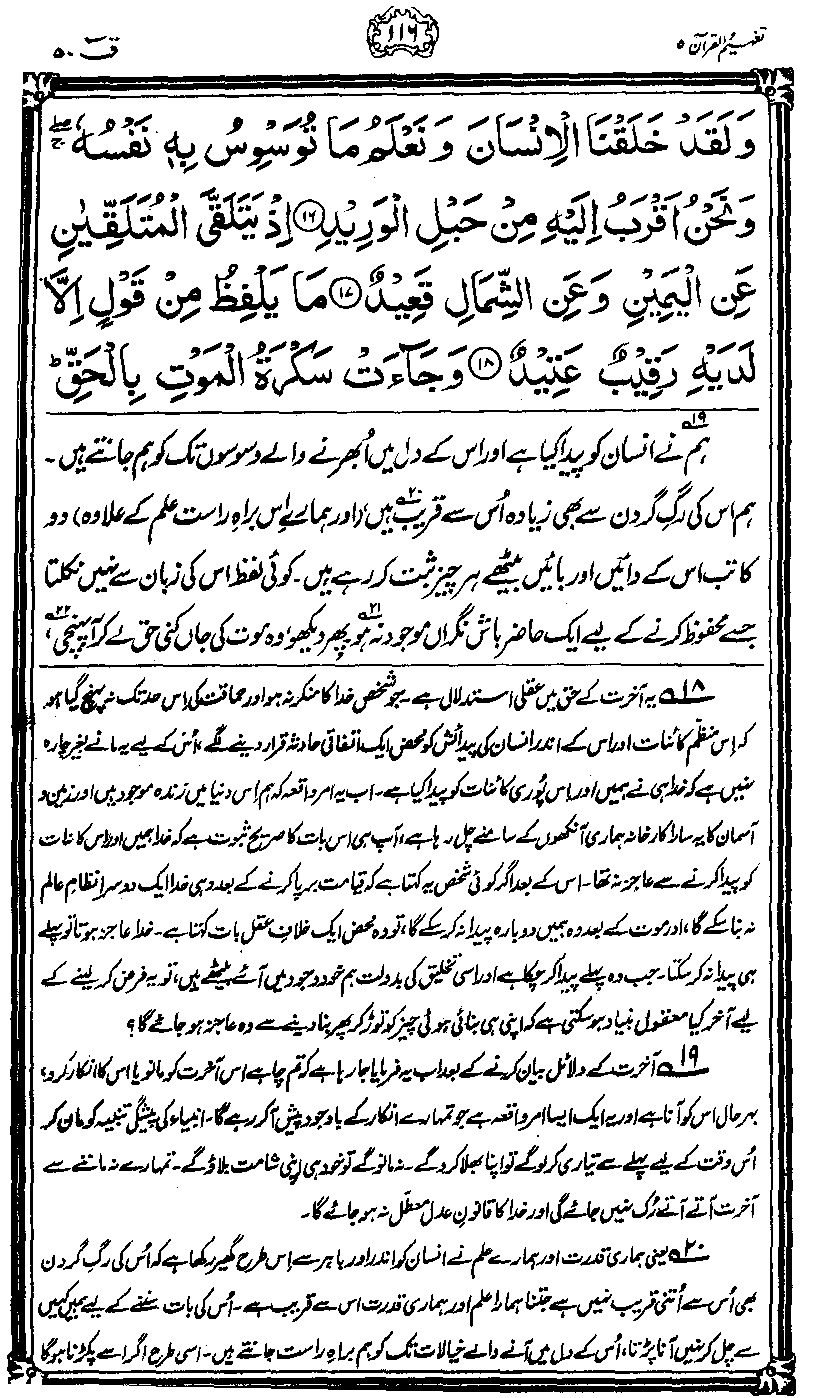 تفہیم القرآن ۵
۱۱۶
قٓ ۵۰
وَلَقَدْ خَلَقْنَا الْإِنْسَانَ وَنَعْلَمُ مَا تُوَسْوِسُ بِهٖ نَفْسُهٗ ۚۖ
وَنَحْنُ اَقْرَبُ اِلَيْهِ مِنْ حَبْلِ الْوَرِيْدِ ﴿۱۶﴾ اِذْ يَتَلَقَّى الْمُتَلَقِّيٰنِ
عَنِ الْيَمِيْنِ وَعَنِ الشِّمَالِ قَعِيْدٌ ﴿۱۷﴾ مَا يَلْفِظُ مِنْ قَوْلٍ اِلَّا
لَدَيْهِ رَقِيْبٌ عَتِيْدٌ ﴿۱۸﴾ وَجَآءَتْ سَكْرَةُ الْمَوْتِ بِالْحَقِّ ؕ
ہم ۱۹؂ نے انسان کو پیدا کیا ہے اور اس کے دل میں اُبھرنے والے وسوسوں تک کو ہم جانتے ہیں۔
ہم اس کی رگِ گردن سے بھی زیادہ اُس سے قریب ۲۰؂ ہیں، (اور ہمارے اِس براہِ راست علم کے علاوہ) دو
کاتب اس کے دائیں اور بائیں بیٹھے ہر چیز ثبت کر رہے ہیں۔ کوئی لفظ اس کی زبان سے نہیں نکلتا
جسے محفوظ کرنے کے لیے ایک حاضر باش نگراں موجود نہ ہو ۲۱؂۔ پھر دیکھو، وہ موت کی جاں کنی حق لے کر آ پہنچی ۲۲؂،
۱۸؂ یہ آخرت کے حق میں عقلی استدلال ہے۔ جو شخص خدا کا منکر نہ ہو اور حماقت کی اِس حد تک نہ پہنچ گیا ہو
کہ اِس منظم کائنات اور اس کے اندر انسان کی پیدائش کو محض ایک اتفاقی حادثہ قرار دینے لگے، اُس کے لیے یہ مانے بغیر چارہ
نہیں ہے کہ خدا ہی نے ہمیں اور اِس پوری کائنات کو پیدا کیا ہے۔ اب یہ امر واقعہ کہ ہم اِس دنیا میں زندہ موجود ہیں اور زمین و
آسمان کا یہ سارا کارخانہ ہماری آنکھوں کے سامنے چل رہا ہے، آپ ہی اس بات کا صریح ثبوت ہے کہ خدا ہمیں اور اس کائنات
کو پیدا کرنے سے عاجز نہ تھا۔ اس کے بعد اگر کوئی شخص یہ کہتا ہے کہ قیامت برپا کرنے کے بعد وہی خدا ایک دوسرا نظامِ عالم
نہ بنا سکے گا، اور موت کے بعد وہ ہمیں دوبارہ پیدا نہ کر سکے گا، تو وہ محض ایک خلافِ عقل بات کہتا ہے۔ خدا عاجز ہوتا تو پہلے
ہی پیدا نہ کر سکتا۔ جب وہ پہلے پیدا کر چکا ہے اور اسی تخلیق کی بدولت ہم خود وجود میں آئے بیٹھے ہیں، تو یہ فرض کر لینے کے
لیے آخر کیا معقول بنیاد ہو سکتی ہے کہ اپنی ہی بنائی ہوئی چیز کو توڑ کر پھر بنا دینے سے وہ عاجز ہو جائے گا؟
۱۹؂ آخرت کے دلائل بیان کرنے کے بعد اب یہ فرمایا جا رہا ہے کہ تم چاہے اس آخرت کو مانو یا اس کا انکار کرو،
بہر حال اس کو آنا ہے اور یہ ایک ایسا امر واقعہ ہے جو تمہارے انکار کے باوجود پیش آ کر رہے گا۔ انبیاء کی پیشگی تنبیہ کو مان کر
اُس وقت کے لیے پہلے سے تیاری کر لو گے تو اپنا بھلا کرو گے۔ نہ مانو گے تو خود ہی اپنی شامت بلاؤ گے۔ تمہارے نہ ماننے سے
آخرت آتے آتے رُک نہیں جائے گی اور خدا کا قانونِ عدل معطل نہ ہو جائے گا۔
۲۰؂ یعنی ہماری قدرت اور ہمارے علم نے انسان کو اندر اور باہر سے اِس طرح گھیر رکھا ہے کہ اُس کی رگِ گردن
بھی اُس سے اُتنی قریب نہیں ہے جتنا ہمارا علم اور ہماری قدرت اس سے قریب ہے۔ اُس کی بات سننے کے لیے ہمیں کہیں
سے چل کر نہیں آنا پڑتا، اُس کے دل میں آنے والے خیالات تک کو ہم براہِ راست جانتے ہیں۔ اسی طرح اگر اسے پکڑنا ہوگا